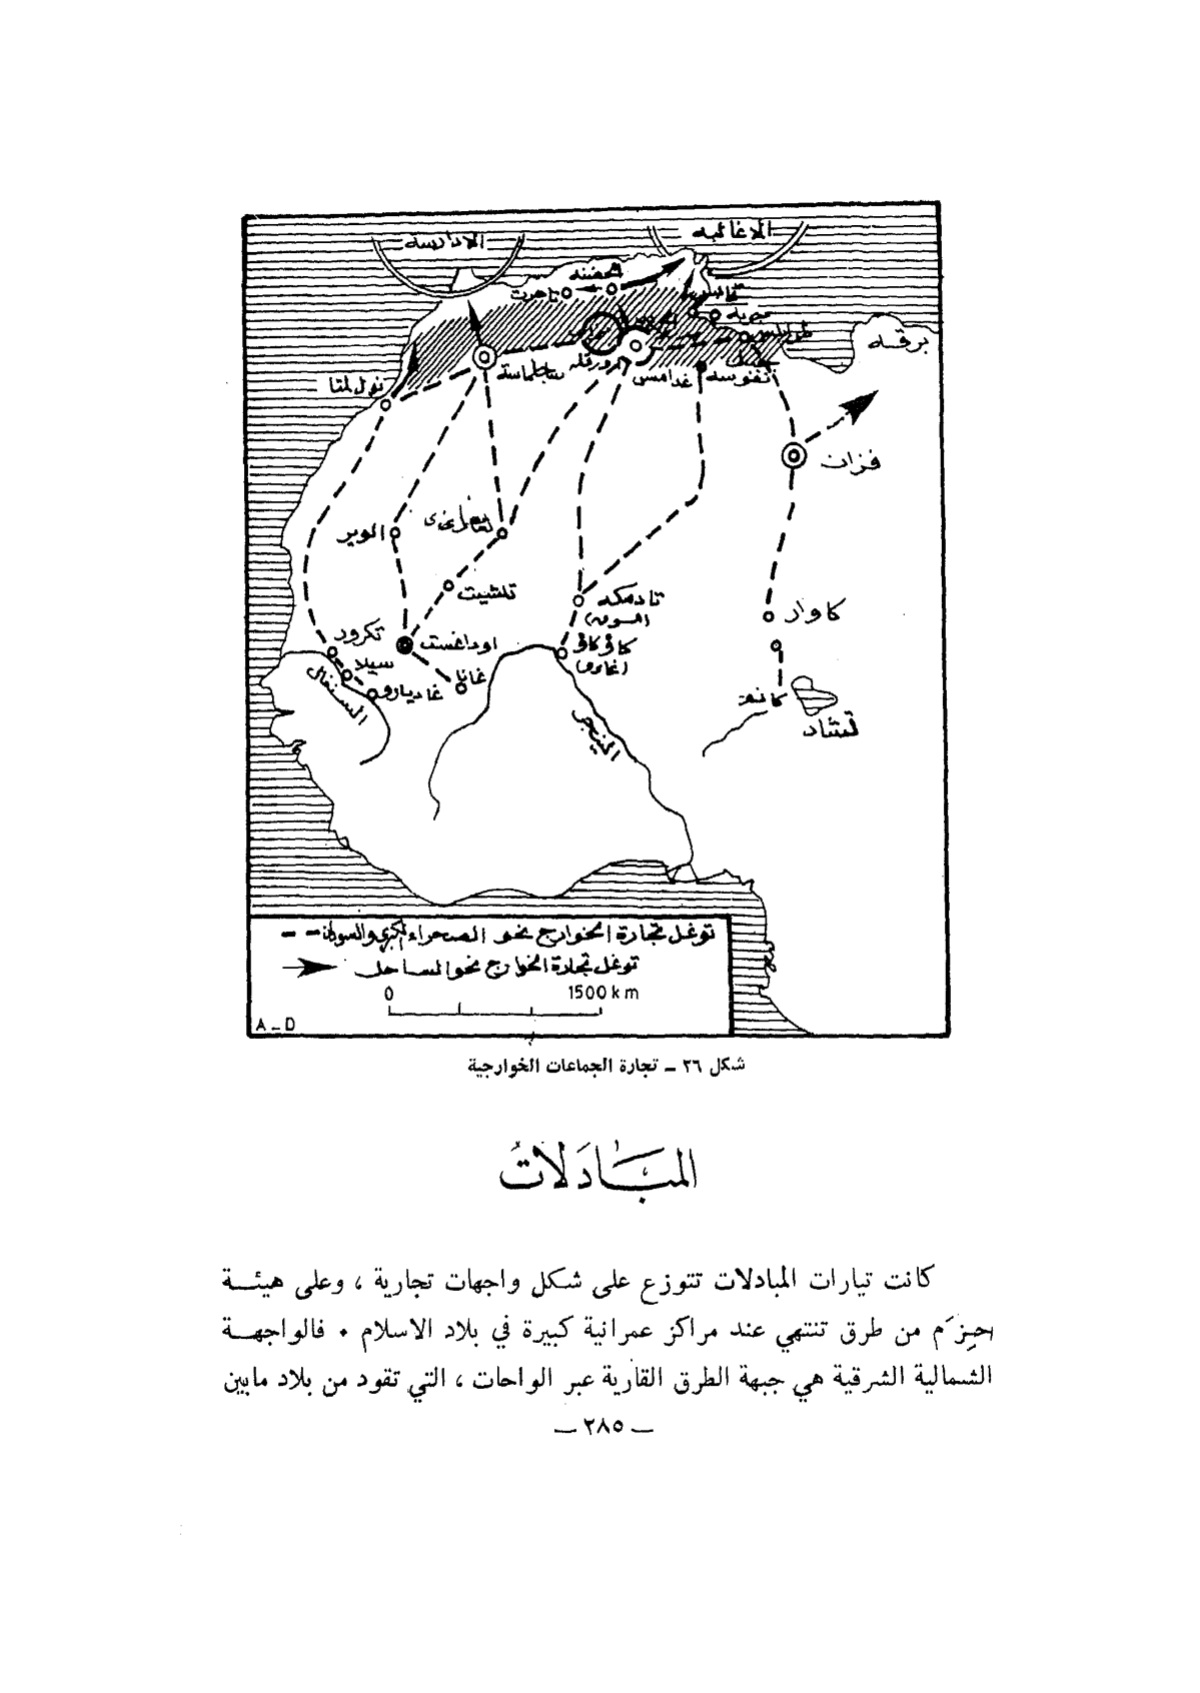 الاغالبه
الادارسة
الحضنه
تاهرت
قابس
جربه
طرابلس
برقه
جبل
نفوسه
غدامس
ورقله
سجلماسة
نول لمتا
فزان
الوير
تغازى
تلشيت
تادمكه
(السوق)
كاوار
تكرور
اوداغست
كاوكاو
(غاو)
سيلا
غانا
غاديارو
السنغال
كانم
تشاد
النيجر
توغل تجارة الخوارج نحو الصحراء الكبرى والسودان
توغل تجارة الخوارج نحو الساحل
0 1500 km
A_D
شكل ٢٦ ــ تجارة الجماعات الخوارجية
المبَادَلاتُ
كانت تيارات المبادلات تتوزع على شكل واجهات تجارية ، وعلى هيئــة
حِزَم من طرق تنتهي عند مراكز عمرانية كبيرة في بلاد الاسلام ٠ فالواجهــة
الشمالية الشرقية هي جبهة الطرق القارية عبر الواحات ، التي تقود من بلاد مابين
ــ ٢٨٥ ــ